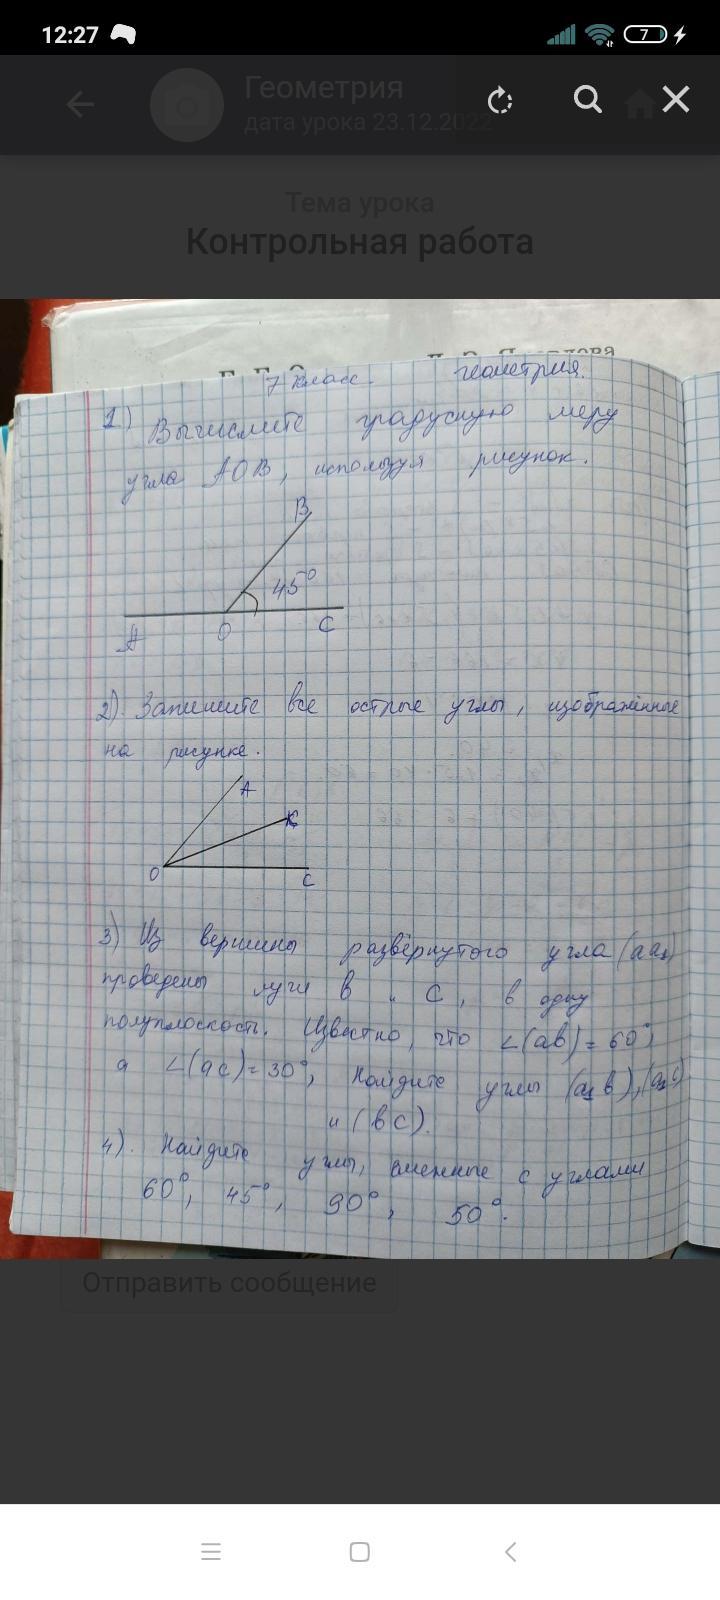 12:27
7
Геометрия
дата урока 23.12.2022
Тема урока
Контрольная работа
7 класс. геометрия.
1) Вычислите градусную меру
угла АОВ, используя рисунок.
В
45°
А О С
2). Запишите все острые углы, изображённые
на рисунке.
А
К
О
С
3) Из вершины развёрнутого угла (аа₁)
проведены лучи в и С, в одну
полуплоскость. Известно, что ∠(ab) = 60°,
а ∠(ac) = 30°, Найдите углы (a₁b), (a₁c)
и (bc).
4). Найдите углы, смежные с углами
60°, 45°, 90°, 50°.
Отправить сообщение